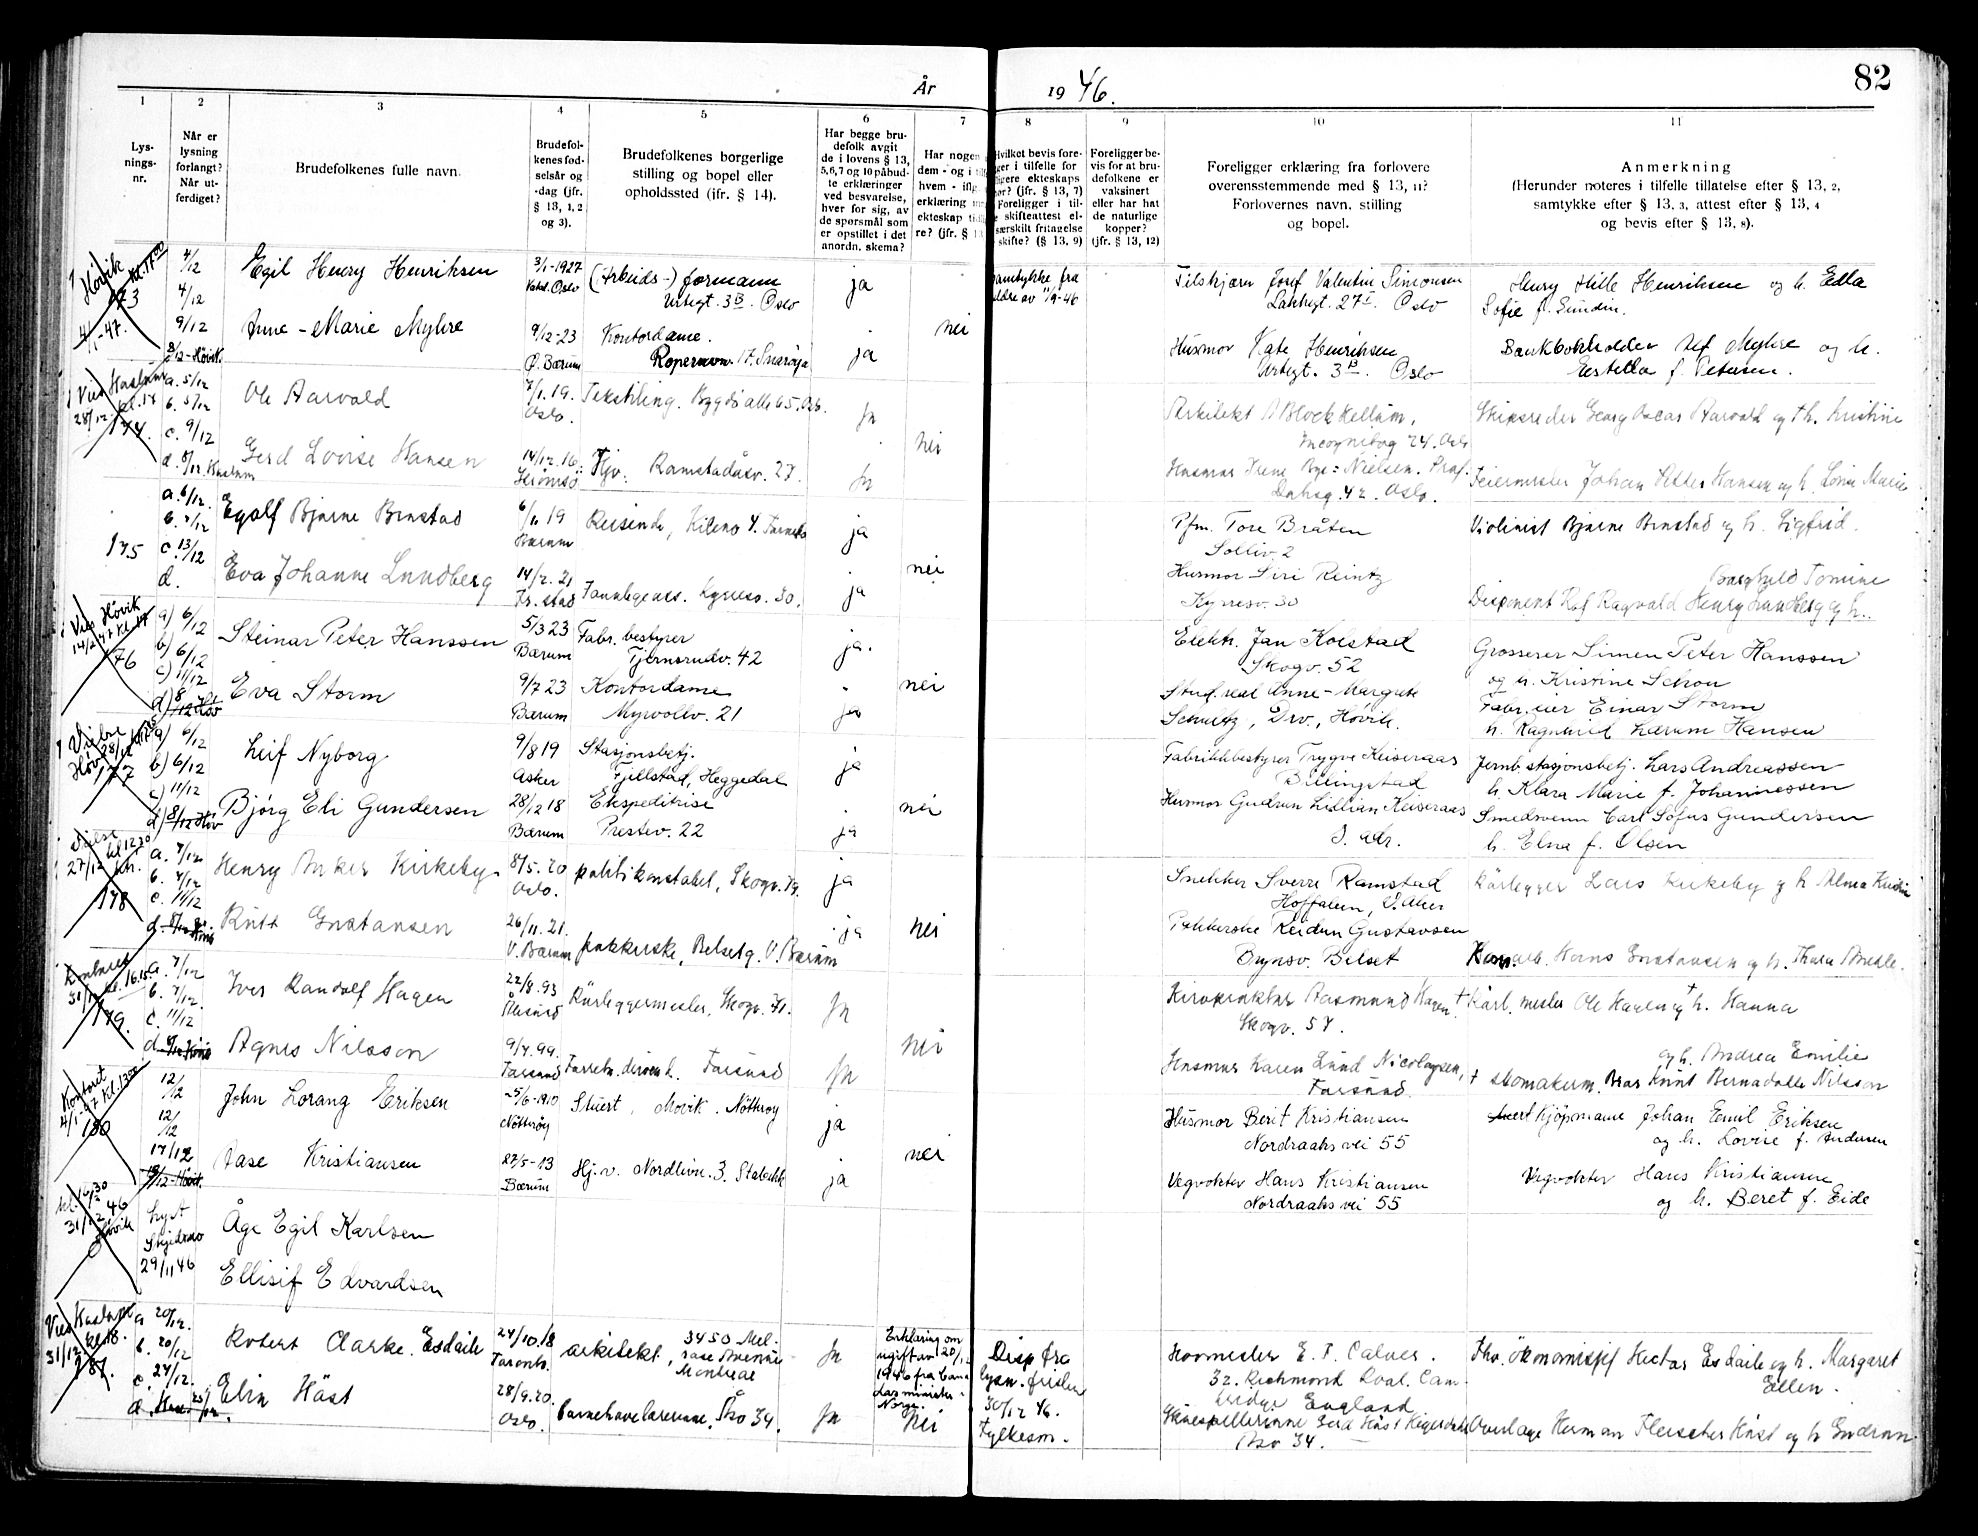 År 19 46.
82
1
2
3
4
5
6
7
8
9
10
11
Lys-
nings-
nr.
Når er
lysning
forlangt?
Når ut-
ferdiget?
Brudefolkenes fulle navn.
Brudefol-
kenes fød-
selsår og
-dag (jfr.
§ 13, 1, 2
og 3).
Brudefolkenes borgerlige
stilling og bopel eller
opholdssted (jfr. § 14).
Har begge bru-
defolk avgit
de i lovens § 13,
5,6,7 og 10 påbud-
te erklæringer
ved besvarelse,
hver for sig, av
de spørsmål som
er opstillet i det
anordn. skema?
Har nogen
dem - og i til
hvem - ifl.
erklæring
ekteskap tid
re? (jfr. § 13
Hvilket bevis fore-
ger i tilfelle for
ligere ekteskaps
hør? (jfr. § 13, 7)
Foreligger i til-
e skifteattest el-
særskilt fritagelse
skifte? (§ 13, 9)
Foreligger be-
vis for at bru-
defolkene er
vaksinert
eller har hat
de naturlige
kopper?
(jfr. § 13, 12)
Foreligger erklæring fra forlovere
overensstemmende med § 13, 11?
Forlovernes navn, stilling
og bopel.
Anmerkning
(Herunder noteres i tilfelle tillatelse efter § 13, 2,
samtykke efter § 13, 3, attest efter § 13, 4
og bevis efter § 13, 8).
Høvik kl. 17.00
173
4/1-47.
4/12
4/12
Egil Henry Henriksen
3/1-1927
Oslo
(Arbeids-) formann
Urtegt. 3B. Oslo
ja
samtykke fra
11/9-46
Josef Valentin Simonsen
Lakkegt. 27 I. Oslo
Henry Hille Henriksen og h. Edla
Sofie f. Sundin.
9/12
8/12-Høvik
Anne-Marie Myhre
9/12-23
Ø. Bærum
Kontordame.
17. Snarøya
ja
nei
Husmor Kate Henriksen
Urtegt. 3B. Oslo
Bankbokholder Alf Myhre og h.
Estella f. Petersen.
Vies Haslum
28/12 kl. 14
174.
a. 5/12
b. 5/12
Ole Aarvold
7/1. 19.
Oslo.
Tekstiling. Bygdø alle 65. Oslo.
ja
Arkitekt A Block Hellum,
Incognitog 24. Oslo
Skipsreder Georg Oscar Aarvold og † h. Kristine
c. 9/12
d. 8/12. Haslum
Gerd Lovise Hansen
14/12. 16.
Hjv. Ramstadåsv. 27.
ja
nei
Husmor Irene Bye-Nielsen. Prof.
Dahsg. 42. Oslo.
Feiermester Johan Petter Hansen og h. Lovise Marie
175
a. 6/12.
Egolf Bjarne Brustad
6/11 19
Bærum
Reisende, Kilenv 4. Fornebo
ja
Pfm. Tore Bråten
Solliv. 2
Violinist Bjarne Brustad og h. Sigfrid.
c. 13/12
d.
Eva Johanne Lundberg
14/2. 21
Fr. stad
Tannlegeass. Kyrresv. 30.
ja
nei
Husmor Siri Reintz
Kyrresv. 30
Borghild Tomine
Disponent Rolf Ragvald Henry Lundberg og h..
Vies Høvik
14/2 47 kl. 17
176
a) 6/12
b) 6/12
Steinar Peter Hanssen
5/3 23
Bærum
Fabr. bestyrer
Tjernsrudv. 42
ja.
Elektr. Jan Kolstad
Skogv. 52
Grosserer Simen Peter Hanssen
og h. Kristine Schou
c) 11/12
d) 8/12 Høv
Eva Storm
9/7 23
Bærum
Kontordame
Myrvollv. 21
ja
nei
Stud. real Anne-Margrete
Schultz, Drv., Høvik.
Fabr. eier Einar Storm
h. Ragnhild Lærum Hansen
Vielse
Høv 28/12
177
a) 6/12
b) 6/12
Leif Nyborg
9/8 19
Asker
Stasjonsbetj.
Fjellstad, Heggedal
ja
Fabrikkbestyrer Trygve Keiseraas
Billingstad
Jernb. stasjonsbetj. Lars Andreassen
h. Klara Marie f. Johannessen
c) 11/12
d) 8/12 Høv
Bjørg Eli Gundersen
28/12 18
Bærum
Ekspeditrise
Prestev. 22
ja
nei
Husmor Gudrun Lillian Keiseraas
S. adr.
Smedsvenn Carl Sofus Gundersen
h. Elna f. Olsen
27/12
178
a. 7/12
b. 7/12
Henry Anker Kirkeby
8/5. 20
Oslo.
politikonstabel, Skogv.
ja
Snekker Sverre Ramstad
Hoffalleen, V. Aker
Rørlegger Lars Kirkeby og h Alma Kristine
c. 11/12
Ruth Gustavsen
26/11. 21.
V. Bærum
pakkerske, Belset g. V. Bærum
ja
nei
Pakkerske Reidun Gustavsen
Brynsv. Belset
Hans Gustavsen og h. Thora Amalie.
Kontoret
31/12 kl. 16.15
179.
a. 7/12
b. 7/12.
Iver Randolf Hagen
22/8. 93
Ålesund
Rørleggermester, Skogv. 71.
ja
Kiropraktor Aasmund Hagen.
Skogv. 57.
† Rørl. mester Ole Hagen og † h. Hanna
c. 11/12
Agnes Nilsson
9/4. 99.
Farsund
Forretn. driven h. Farsund
ja
nei
Husmor Karen Lund Nicolaysen,
Farsund.
og h. Andrea Emilie
† skomakerm. Knut Bernadotte Nilsson
Kontoret
4/1-47 kl. 13.00
180
12/12
12/12
John Lorang Eriksen
25/6-1910
Nøtterøy
Stuert, Movik. Nøtterøy
ja
Husmor Berit Kristiansen
Nordraaks vei 55
Kjøpmann Johan Emil Eriksen
og h. Lovise f. Andersen
17/12
Aase Kristiansen
27/5-13
Bærum
Hj. v. Nordliv. 3. Stabekk
ja
nei
Vegvokter Hans Kristiansen
Nordraaks vei 55
Vegvokter Hans Kristiansen
og h. Beret f. Eide
kl. 16.30
31/12 46
Høvik
Lyst
29/11 46
Åge Egil Karlsen
Ellisif Edvardsen
Vies Haslum
31/12 kl. 18.
181.
a 20/12.
b. 20/12
Robert Clarke Esdaile
24/10. 18
Toronto.
arkitekt, 3450 Mel-
rose Avenue
Montreal
ja
Erklæring om
ugift av 20/12
1946 fra Cana-
das minister i
Norge.
Disp fra
lysn. frister
30/12 46.
Fylkesm.
Hovmester E. T. Calver.
32. Richmond Road. Cam-
bridge England
Thv. økonomisjef Hector Esdaile og h. Margaret
Ellen.
c. 24/12.
Elin Høst
28/9. 20.
Oslo.
barnehavelærerinne, Åsv 34.
ja
nei
Skuespillerinne Gerd Høst
Åsv 34.
Overlege Herman Fleischer Høst og h Gudrun.